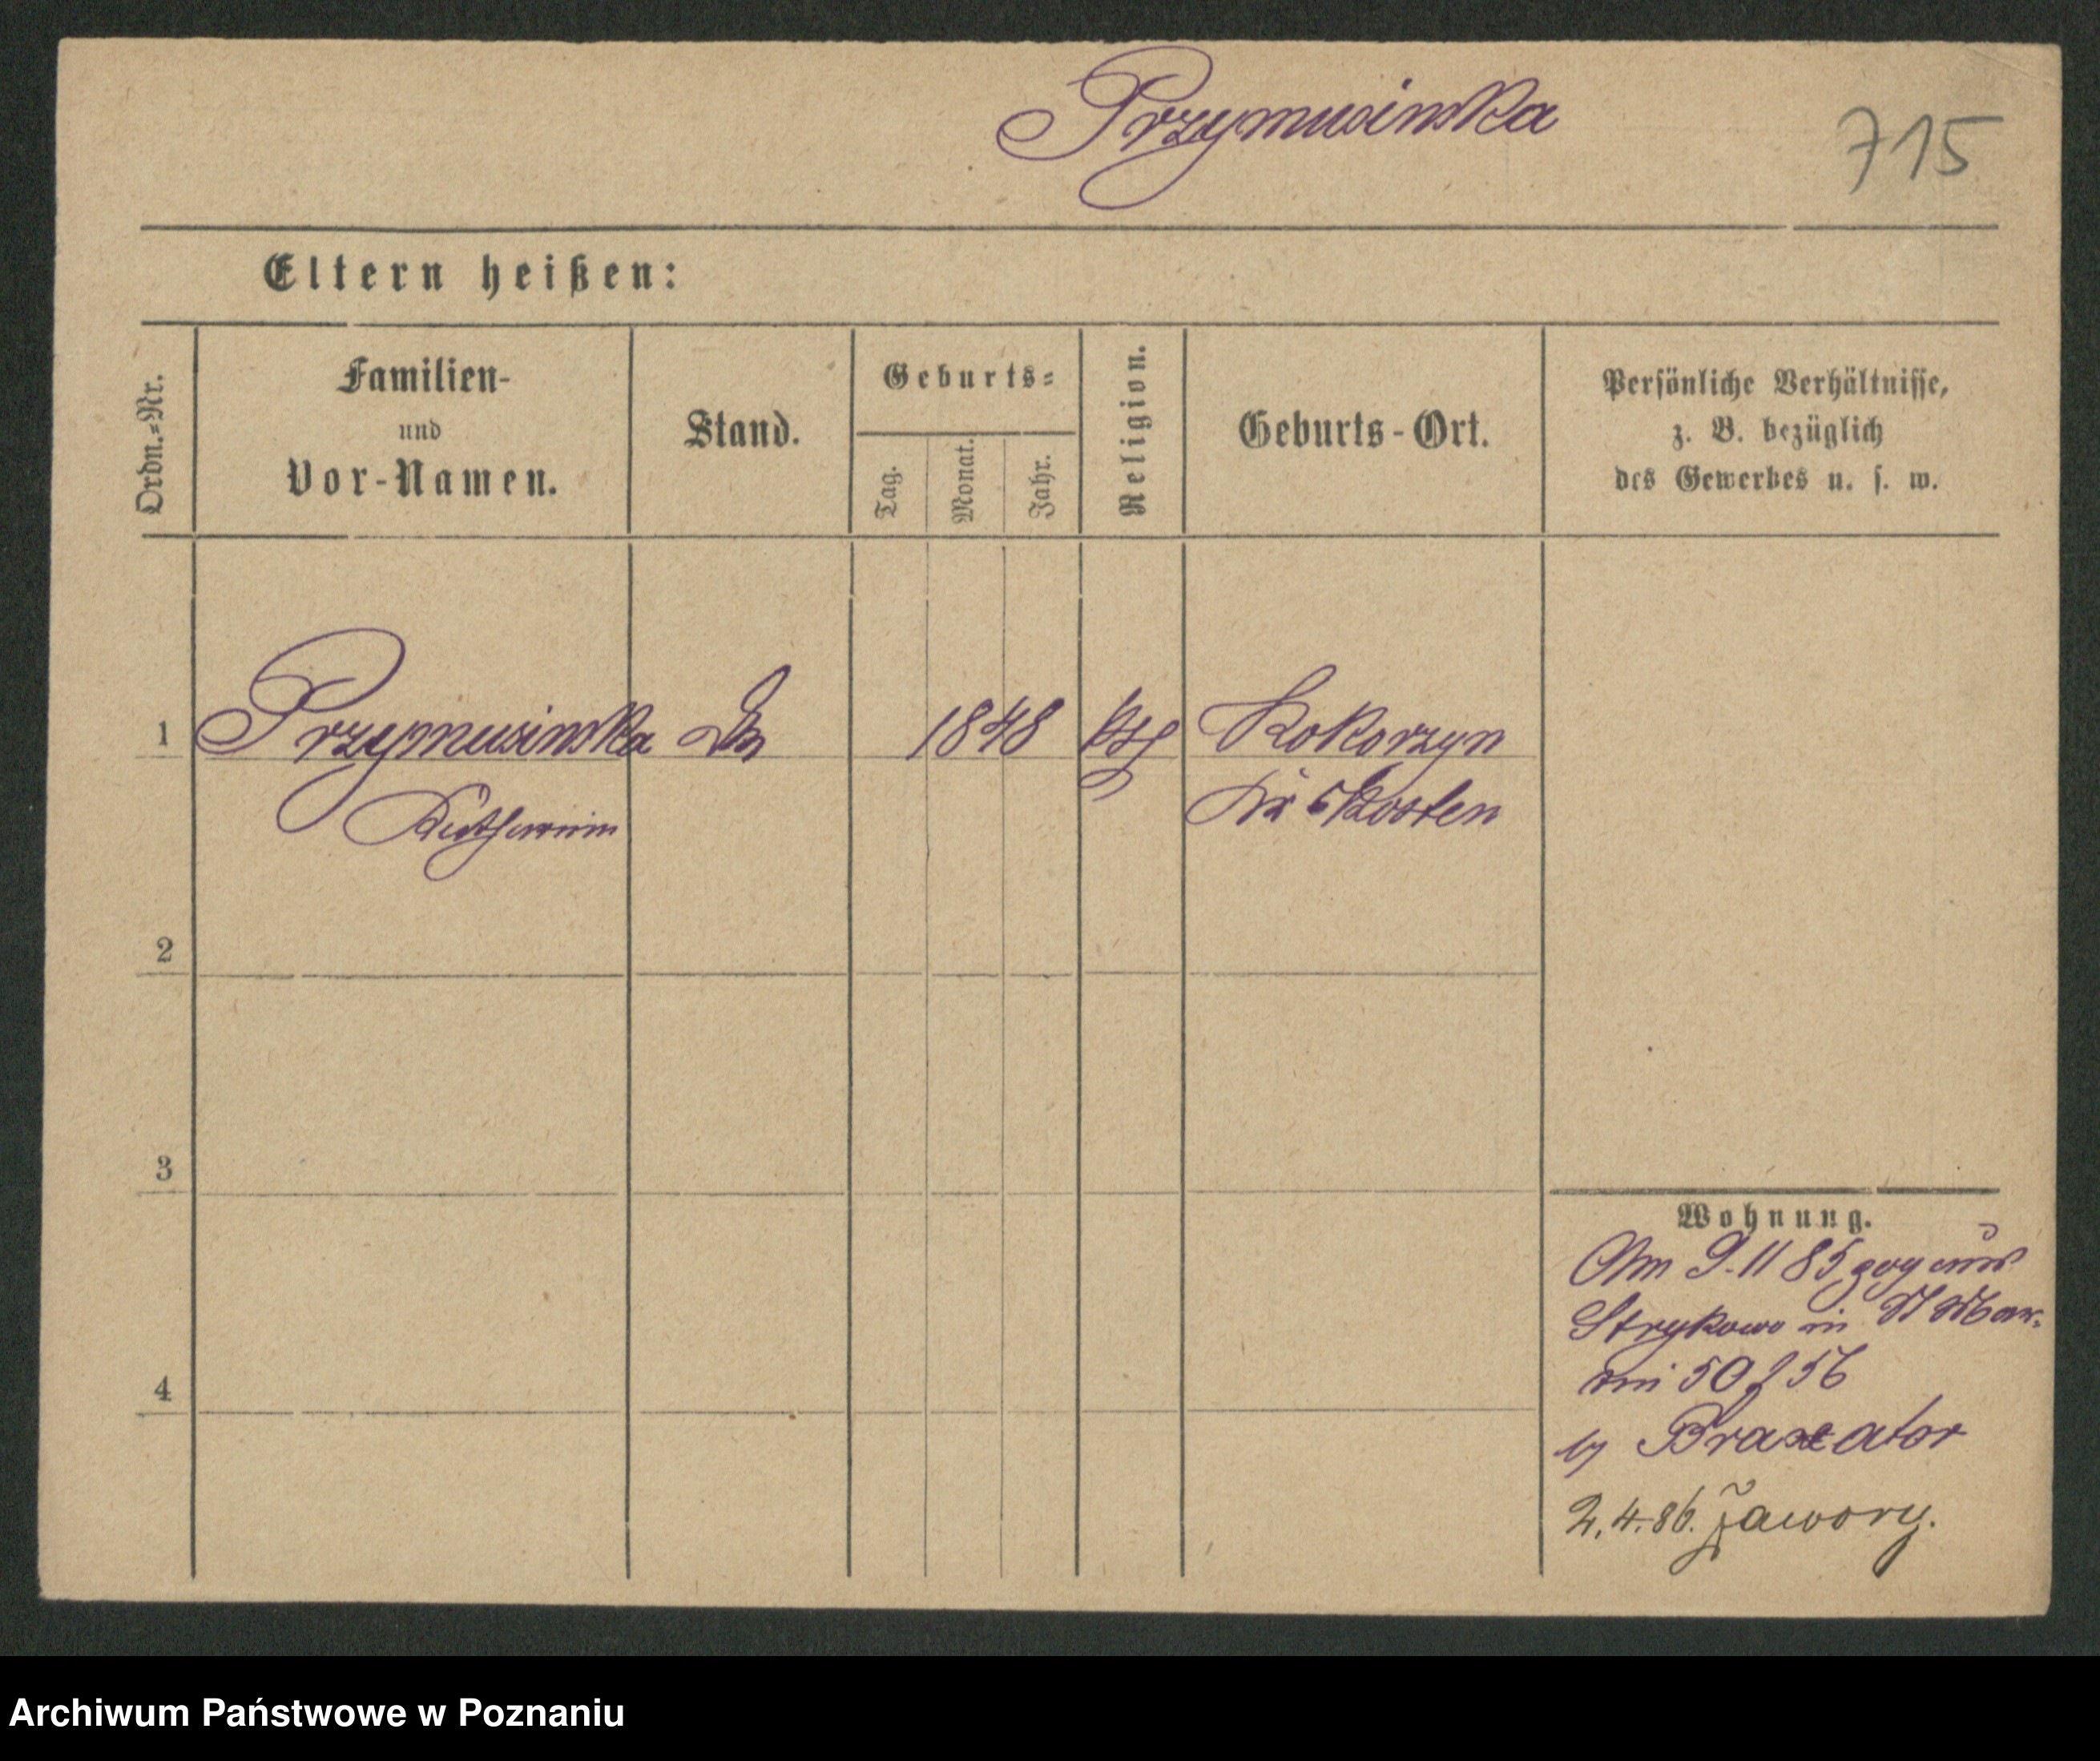 Przymusinska
715
Eltern heißen:
Ordn.=Nr.
Familien-
und
Vor-Namen.
Stand.
Geburts=
Tag.
Monat.
Jahr.
Religion.
Geburts-Ort.
Persönliche Verhältnisse,
z. B. bezüglich
des Gewerbes u. s. w.
1 Przymusinska 1848 Kokorzyn
Katharina Kosten
2
3
4
Wohnung.
Am 9.11 85 zog aus
Strykowo in
50 56
Braxator
2.4.86. Jawory.
Archiwum Państwowe w Poznaniu